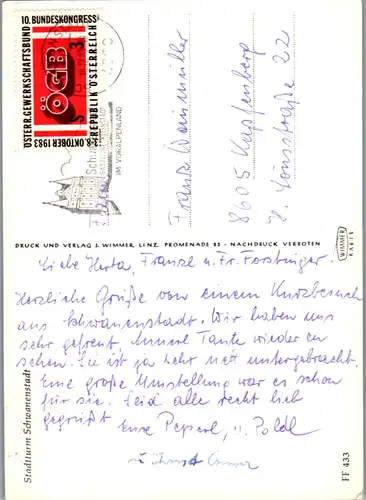 ÖSTERR. GEWERKSCHAFTSBUND 10. BUNDESKONGRESS
ÖGB
S 3
3.-8. OKTOBER 1983 REPUBLIK ÖSTERREICH
IM VORALPENLAND
Franz
8605 Kapfenberg
H. Lönsstraße 22
DRUCK UND VERLAG J. WIMMER, LINZ, PROMENADE 23 - NACHDRUCK VERBOTEN
WIMMER
KARTE
Liebe Herta, Franzl u. Fr. Forstinger.
Herzliche Grüße von einem Kurzbesuch
aus Schwanenstadt. Wir haben uns
sehr gefreut. Unsere Tante wieder zu
sehen. Sie ist ja sehr nett untergebracht.
Eine große Umstellung war es schon
für sie. Seid alle recht lieb
gegrüßt Eure Peperl, u. Poldl
u
Stadtturm Schwanenstadt
FF 433